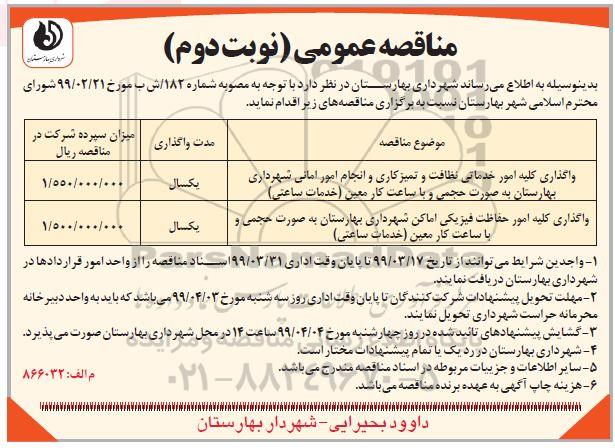 شهرداری بهارستان
مناقصه عمومی (نوبت دوم)
بدینوسیله به اطلاع می‌رساند شهرداری بهارستان در نظر دارد با توجه به مصوبه شماره ۱۸۲/ش ب مورخ ۹۹/۰۲/۲۱ شورای
محترم اسلامی شهر بهارستان نسبت به برگزاری مناقصه‌های زیر اقدام نماید.
موضوع مناقصه
مدت واگذاری
میزان سپرده شرکت در
مناقصه ریال
واگذاری کلیه امور خدماتی نظافت و تمیزکاری و انجام امور امانی شهرداری
بهارستان به صورت حجمی و با ساعت کار معین (خدمات ساعتی)
یکسال
۱/۵۵۰/۰۰۰/۰۰۰
واگذاری کلیه امور حفاظت فیزیکی اماکن شهرداری بهارستان به صورت حجمی و
با ساعت کار معین (خدمات ساعتی)
یکسال
۱/۵۰۰/۰۰۰/۰۰۰
۱- واجدین شرایط می‌توانند از تاریخ ۹۹/۰۳/۱۷ تا پایان وقت اداری ۹۹/۰۳/۳۱ اسناد مناقصه را از واحد امور قراردادها در
شهرداری بهارستان دریافت نمایند.
۲- مهلت تحویل پیشنهادات شرکت‌کنندگان تا پایان وقت اداری روز سه شنبه مورخ ۹۹/۰۴/۰۳ می‌باشد که باید به واحد دبیرخانه
محرمانه حراست شهرداری تحویل نمایند.
۳- گشایش پیشنهادهای تائید شده در روز چهارشنبه مورخ ۹۹/۰۴/۰۴ ساعت ۱۴ در محل شهرداری بهارستان صورت می‌پذیرد.
۴- شهرداری بهارستان در رد یک یا تمام پیشنهادات مختار است.
۵- سایر اطلاعات و جزییات مربوطه در اسناد مناقصه مندرج می‌باشد.
۶- هزینه چاپ آگهی به عهده برنده مناقصه می‌باشد.
م الف: ۸۶۶۰۳۲
داوود بحیرایی - شهردار بهارستان
پایگاه اطلاع رسانی مناقصه و مزایده
۰۲۱-۸۸۳۴۹۶۷۰-۵